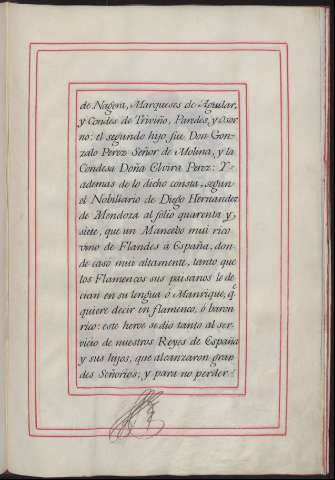 de Nagera, Marqueses de Aguilar,
y Condes de Triviño, Paredes, y Osor
no: el segundo hijo fue Don Gon-
zalo Perez Señor de Molina, y la
Condesa Doña Elvira Perez: Y
ademas de lo dicho consta, segun
el Nobiliario de Diego Hernandez
de Mendoza al folio quarenta y
siete, que un Mancebo mui rico
vino de Flandes á España, don-
de caso mui altamente, tanto que
los Flamencos sus paisanos le de
cian en su lengua o Manrique, q̃.
quiere decir en flamenco, ó baron
rico: este heroe se dio tanto al ser-
vicio de nuestros Reyes de España
y sus hijos, que alcanzaron gran
des Señorios; y para no perder